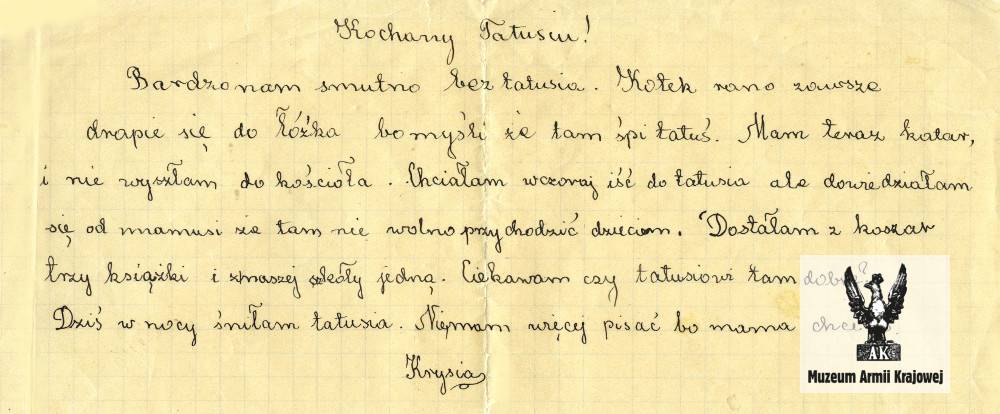 Kochany Tatusiu!
Bardzo nam smutno bez tatusia. Kotek rano zawsze
drapie się do łóżka bo myśli że tam śpi tatuś. Mam teraz katar,
i nie wyszłam do kościoła. Chciałam wczoraj iść do tatusia ale dowiedziałam
się od mamusi że tam nie wolno przychodzić dzieciom. Dostałam z koszar
trzy książki i z naszej szkoły jedną. Ciekawam czy tatusiowi tam dobrze?
Dziś w nocy śniłam tatusia. Niemam więcej pisać bo mama
Krysia
AK
Muzeum Armii Krajowej